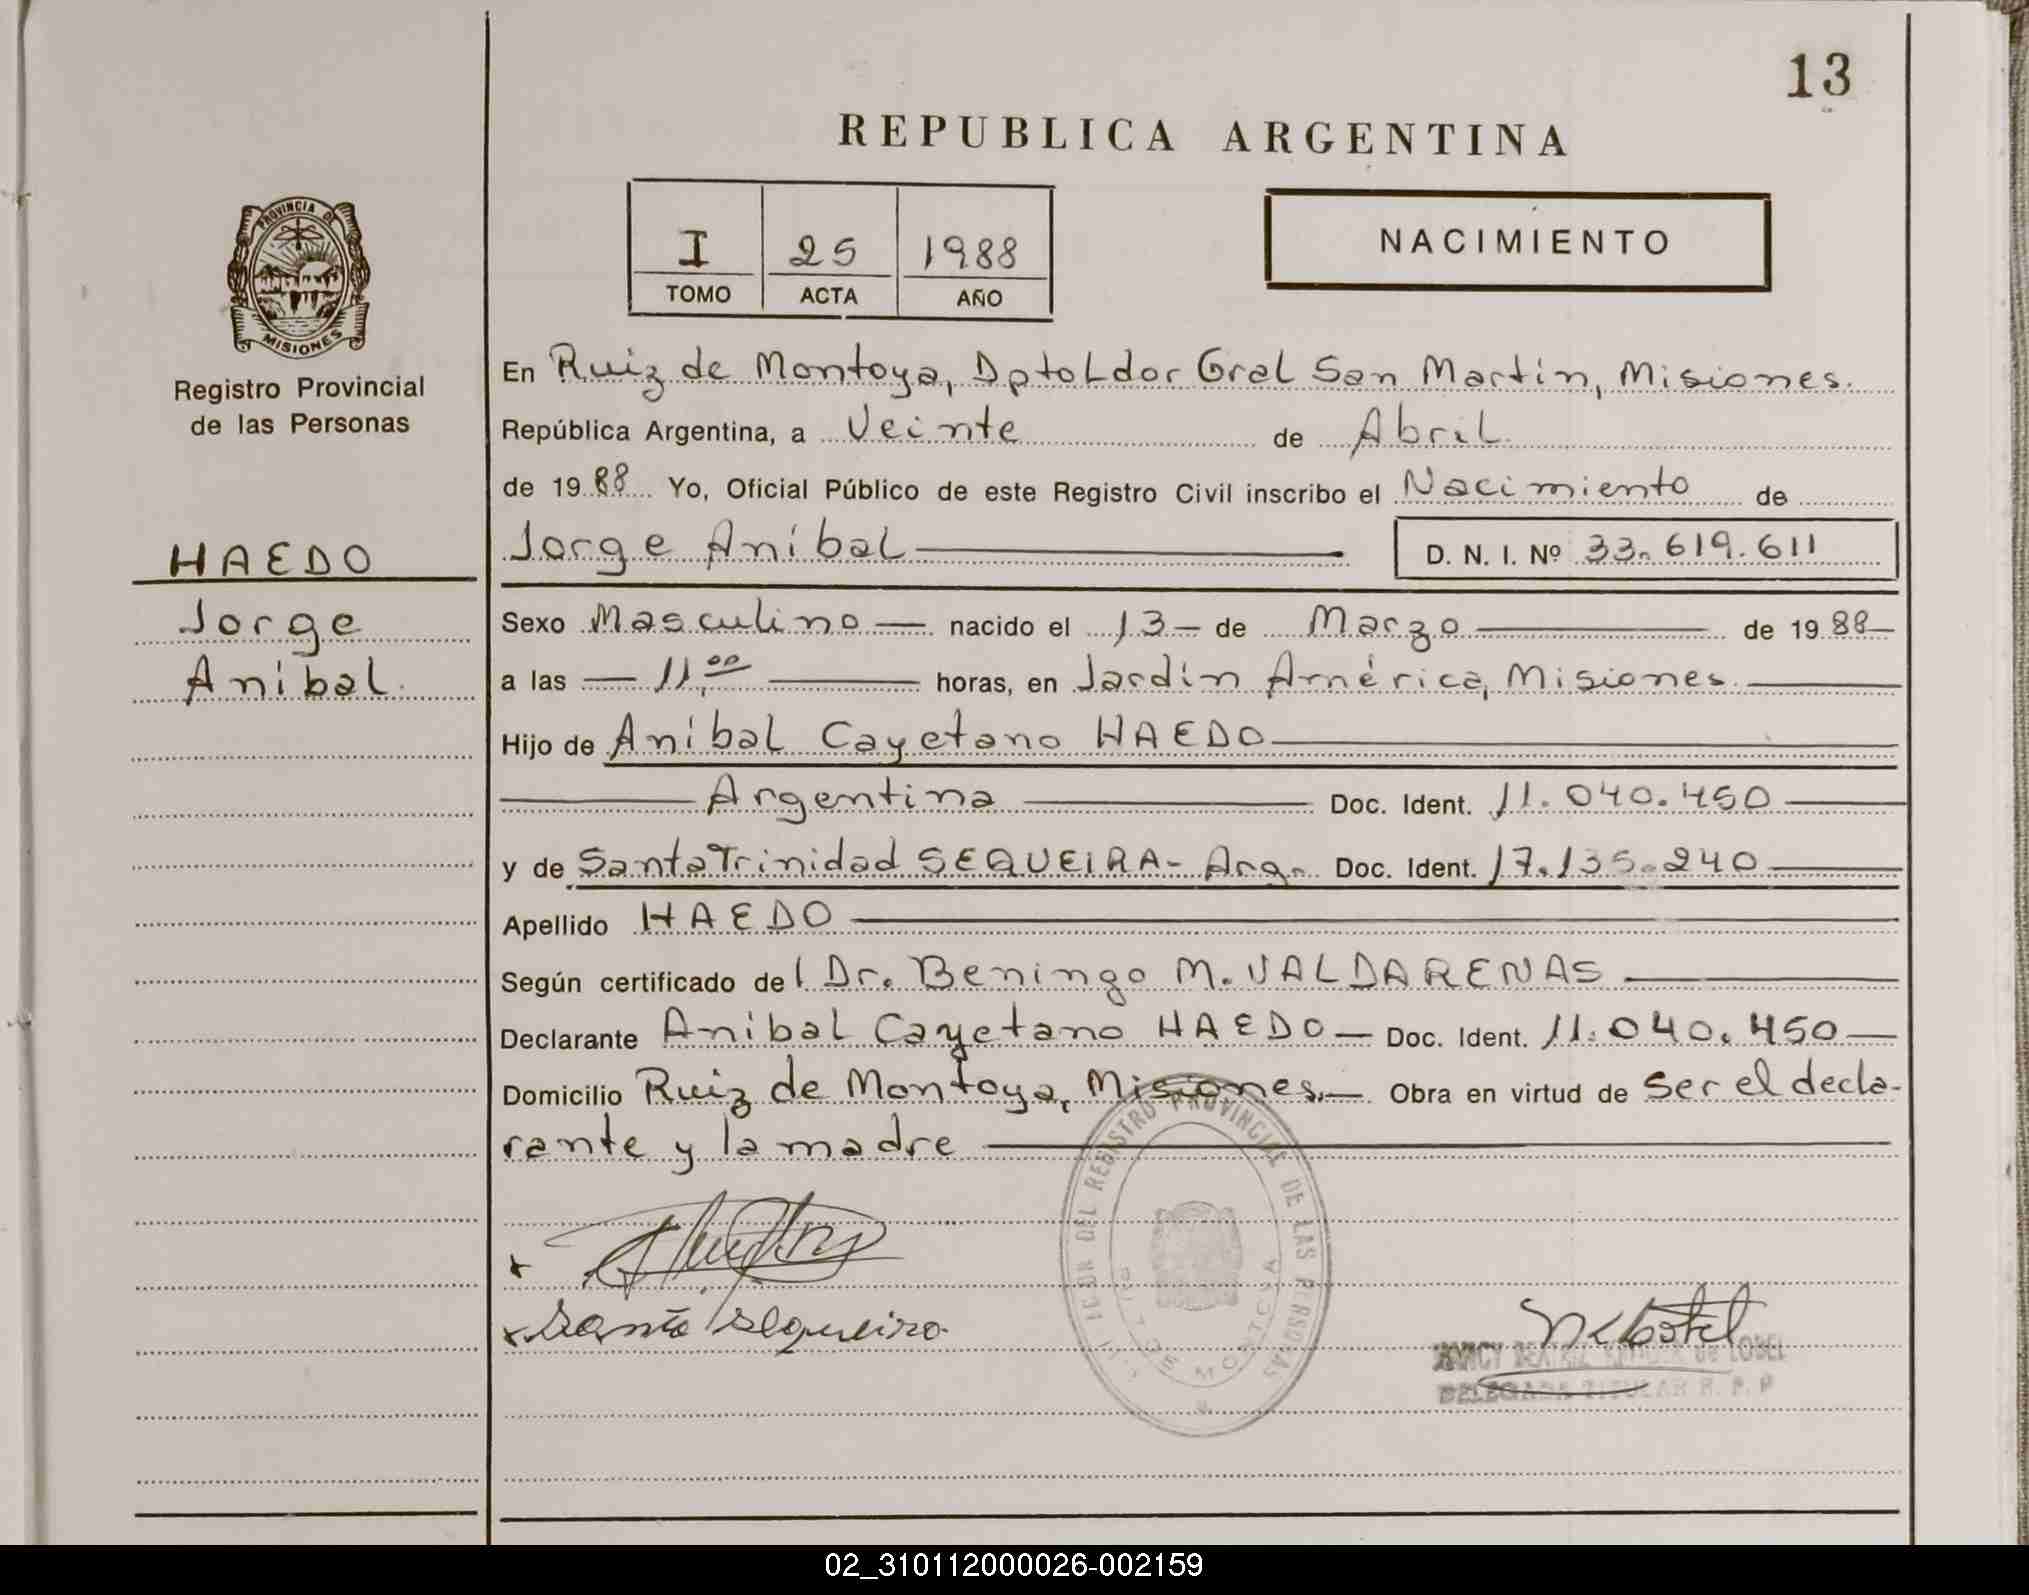 13
REPUBLICA ARGENTINA
I 25 1988
TOMO ACTA AÑO
NACIMIENTO
PROVINCIA DE
MISIONES
Registro Provincial
de las Personas
HAEDO
Jorge
Aníbal
En Ruiz de Montoya, Dpto Ldor Gral San Martín, Misiones.
República Argentina, a Veinte de Abril
de 1988 Yo, Oficial Público de este Registro Civil inscribo el Nacimiento de
Jorge Aníbal D. N. I. Nº 33.619.611
Sexo Masculino nacido el 13 de Marzo de 1988
a las 11,00 horas, en Jardín América, Misiones
Hijo de Aníbal Cayetano HAEDO
Argentina Doc. Ident. 11.040.450
y de Santa Trinidad SEQUEIRA- Arg. Doc. Ident. 17.135.240
Apellido HAEDO
Según certificado del Dr. Beningo M. VALDARENAS
Declarante Aníbal Cayetano HAEDO Doc. Ident. 11.040.450
Domicilio Ruiz de Montoya, Misiones. Obra en virtud de Ser el decla-
rante y la madre
Santa Sequeira
DEL REGISTRO PROVINCIAL DE LAS PERSONAS
NANCY BEATRIZ de LOBEL
DELEGADA TITULAR R. P. P
02_310112000026-002159